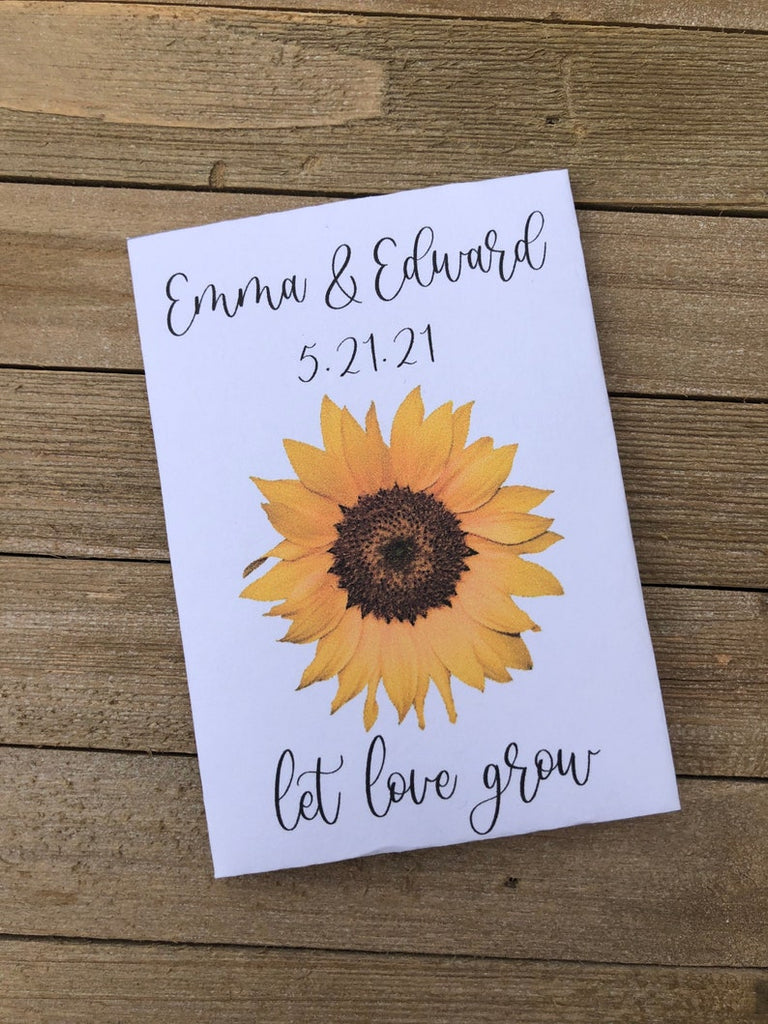 Emma & Edward
5.21.21
let love grow